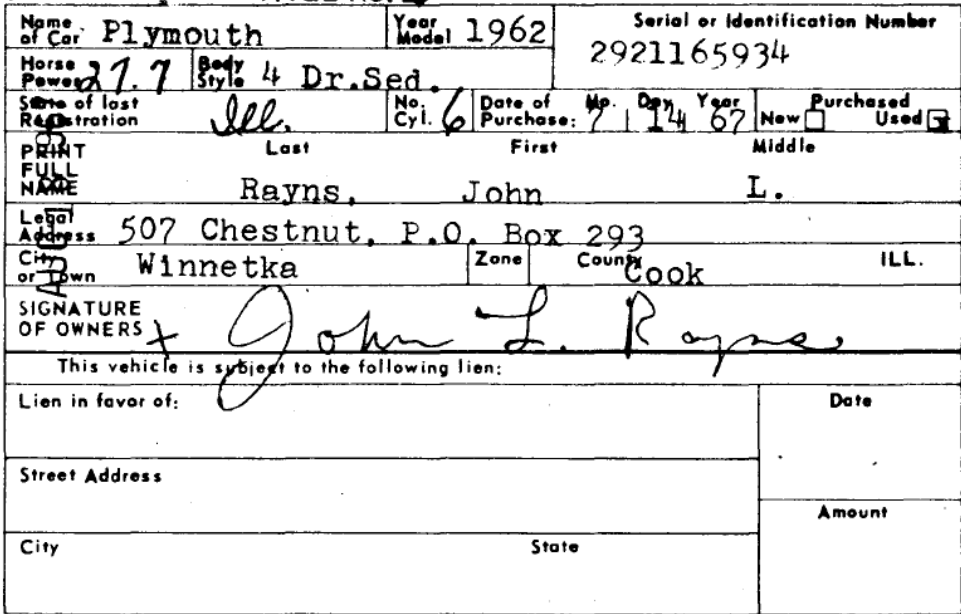 Name of Car Plymouth Year Model 1962 Serial or Identification Number
2921165934
Horse Power 27.7 Body Style 4 Dr.Sed.
State of last Registration Ill. No. Cyl. 6 Date of Purchase: Mo. Day Year 7 14 67 Purchased New Used x
Last First Middle
PRINT FULL NAME Rayns, John L.
Legal Address 507 Chestnut, P.O. Box 293
City or Town Winnetka Zone County Cook ILL.
SIGNATURE OF OWNERS x John L. Rayns
This vehicle is subject to the following lien:
Lien in favor of: Date
Street Address
Amount
City State